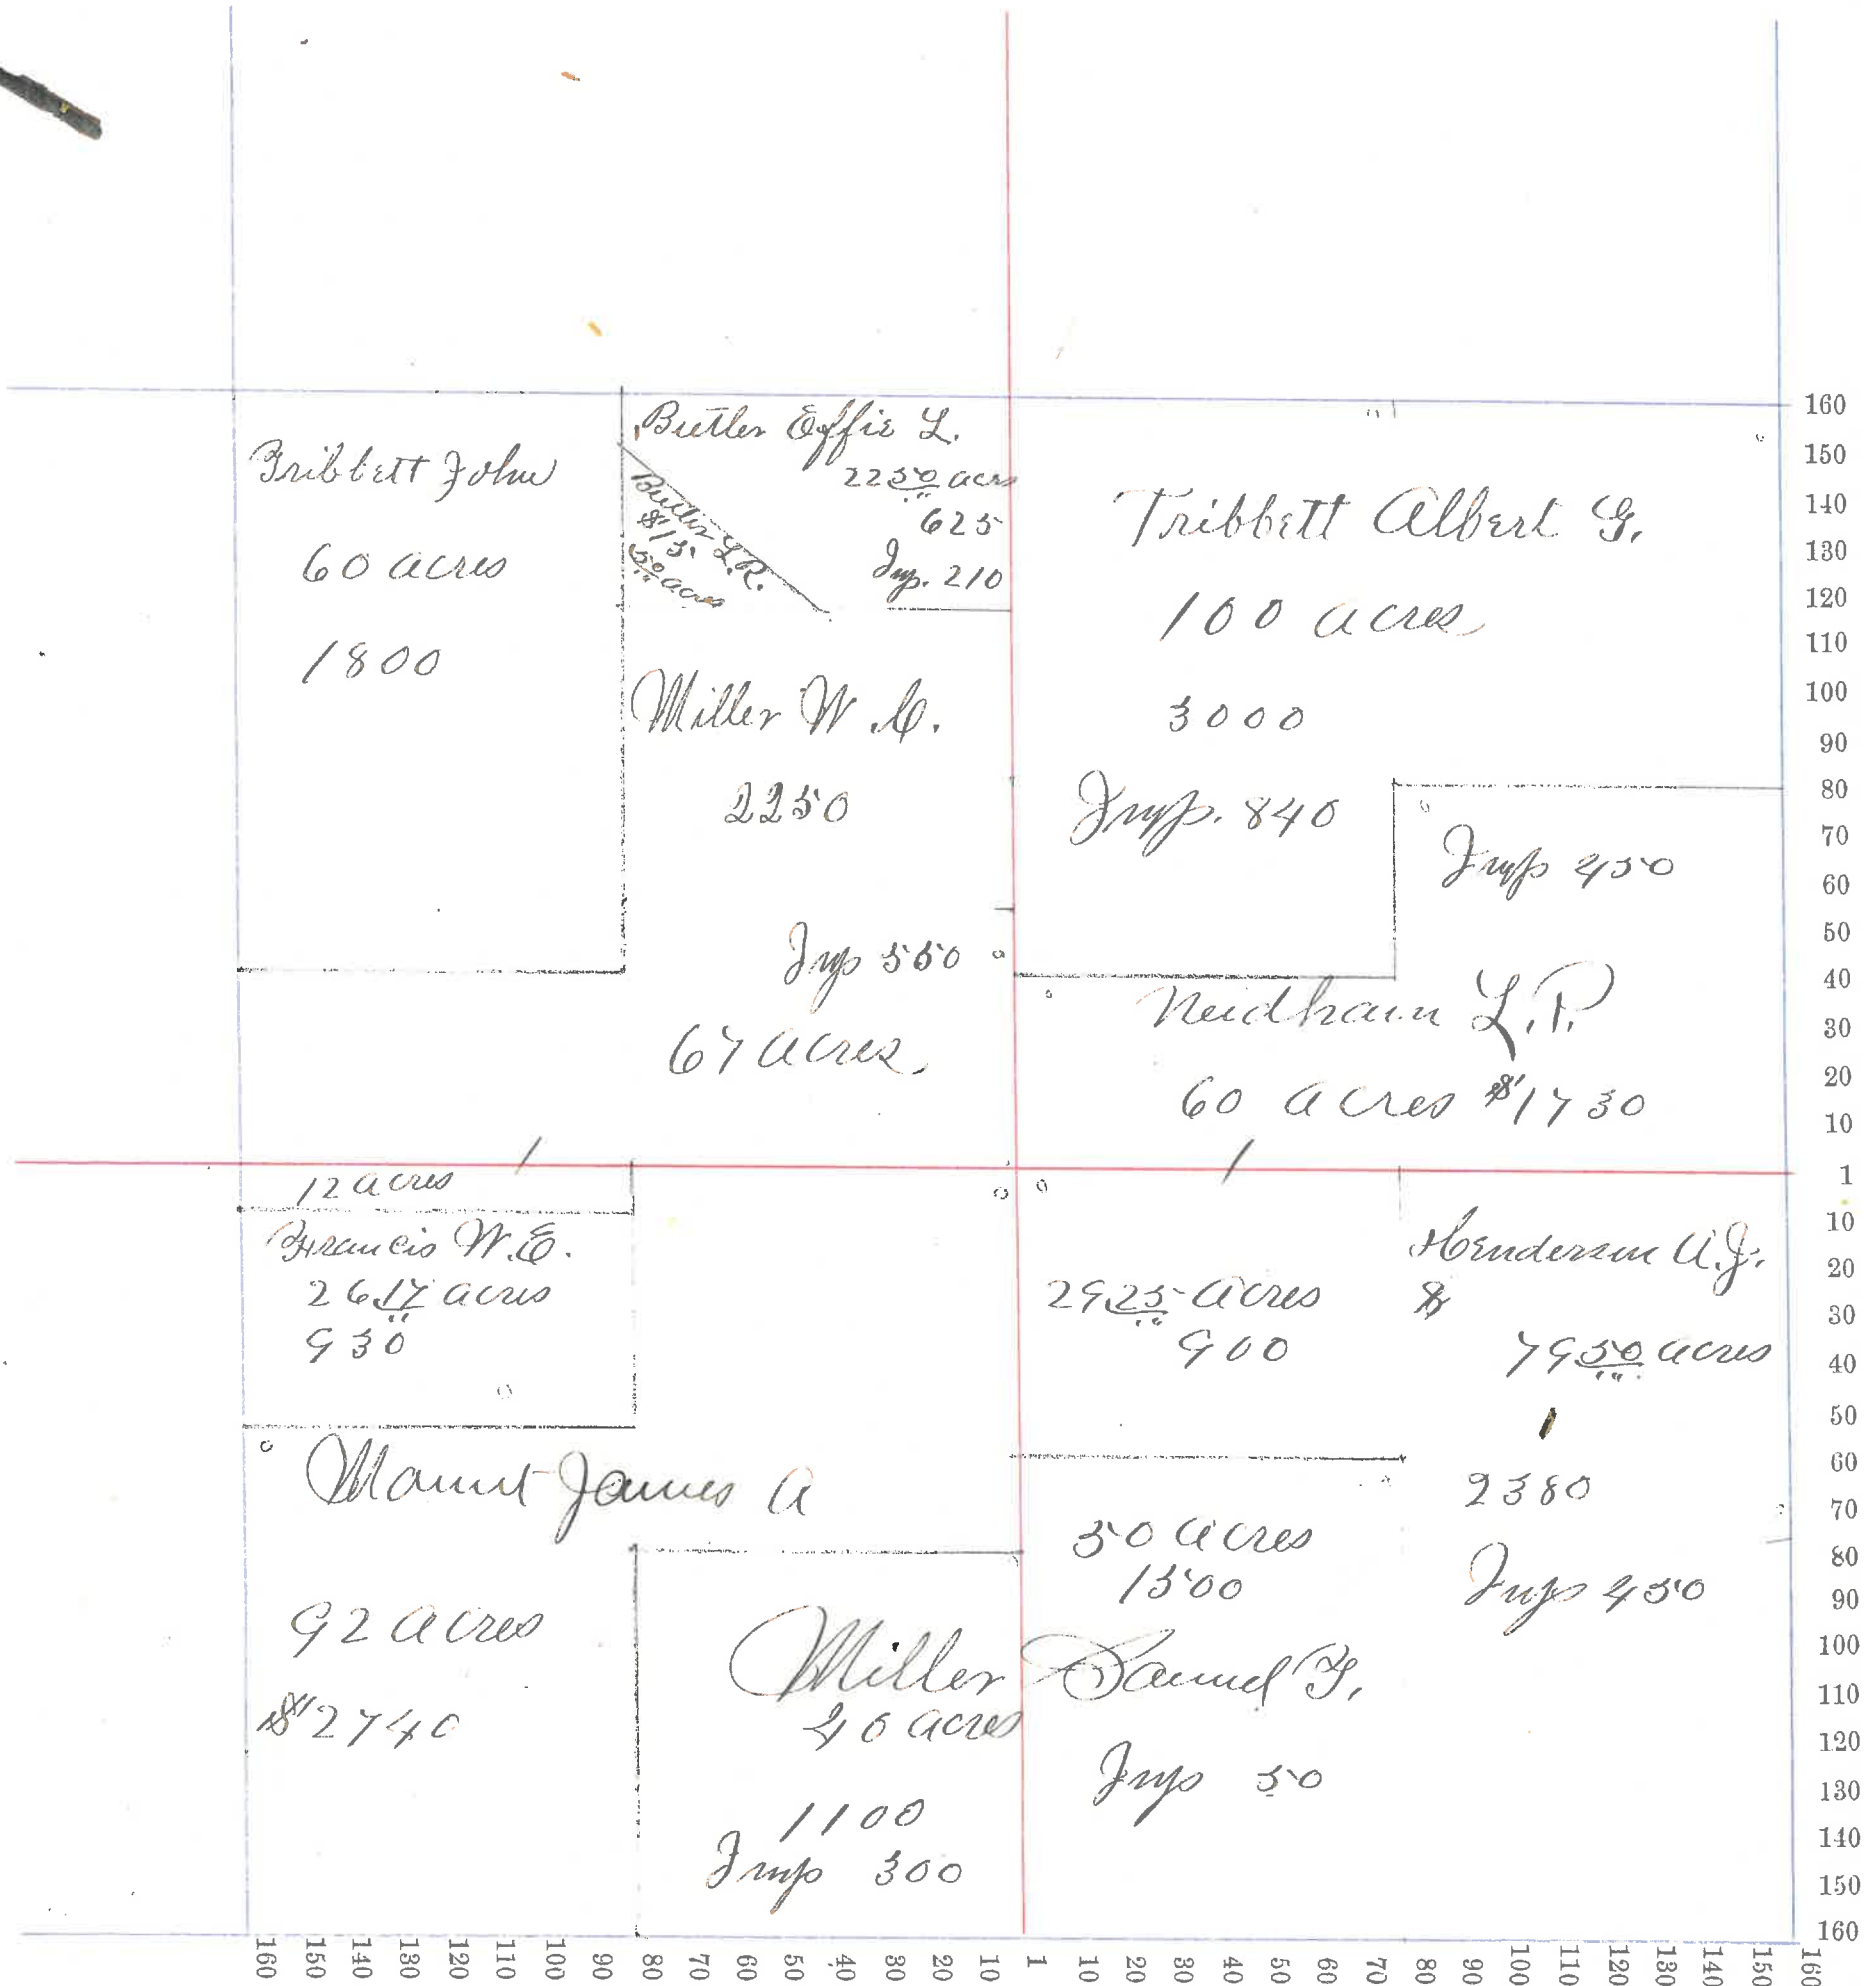 Tribbett John
60 acres
1800
Butler Effie L.
22 50 acrs
625
Imp. 210
Butler L.R.
$15.
50 acres
Miller W.C.
2250
Imp 550
67 acres.
Tribbett Albert G.
100 acres
3000
Imp. 840
Imp 450
Neidham L.P.
60 acres $1730
1
1
12 acres
Francis W.E.
26 17 acres
930
Mount James A
92 acres
$2740
Miller Samuel F.
40 acres
1100
Imp 300
29 25 acres
900
50 acres
1500
Imp 50
Henderson A.J.
$
79 50 acres
2380
Imp 450
160
150
140
130
120
110
100
90
80
70
60
50
40
30
20
10
1
10
20
30
40
50
60
70
80
90
100
110
120
130
140
150
160
160 150 140 130 120 110 100 90 80 70 60 50 40 30 20 10 1 10 20 30 40 50 60 70 80 90 100 110 120 130 140 150 160